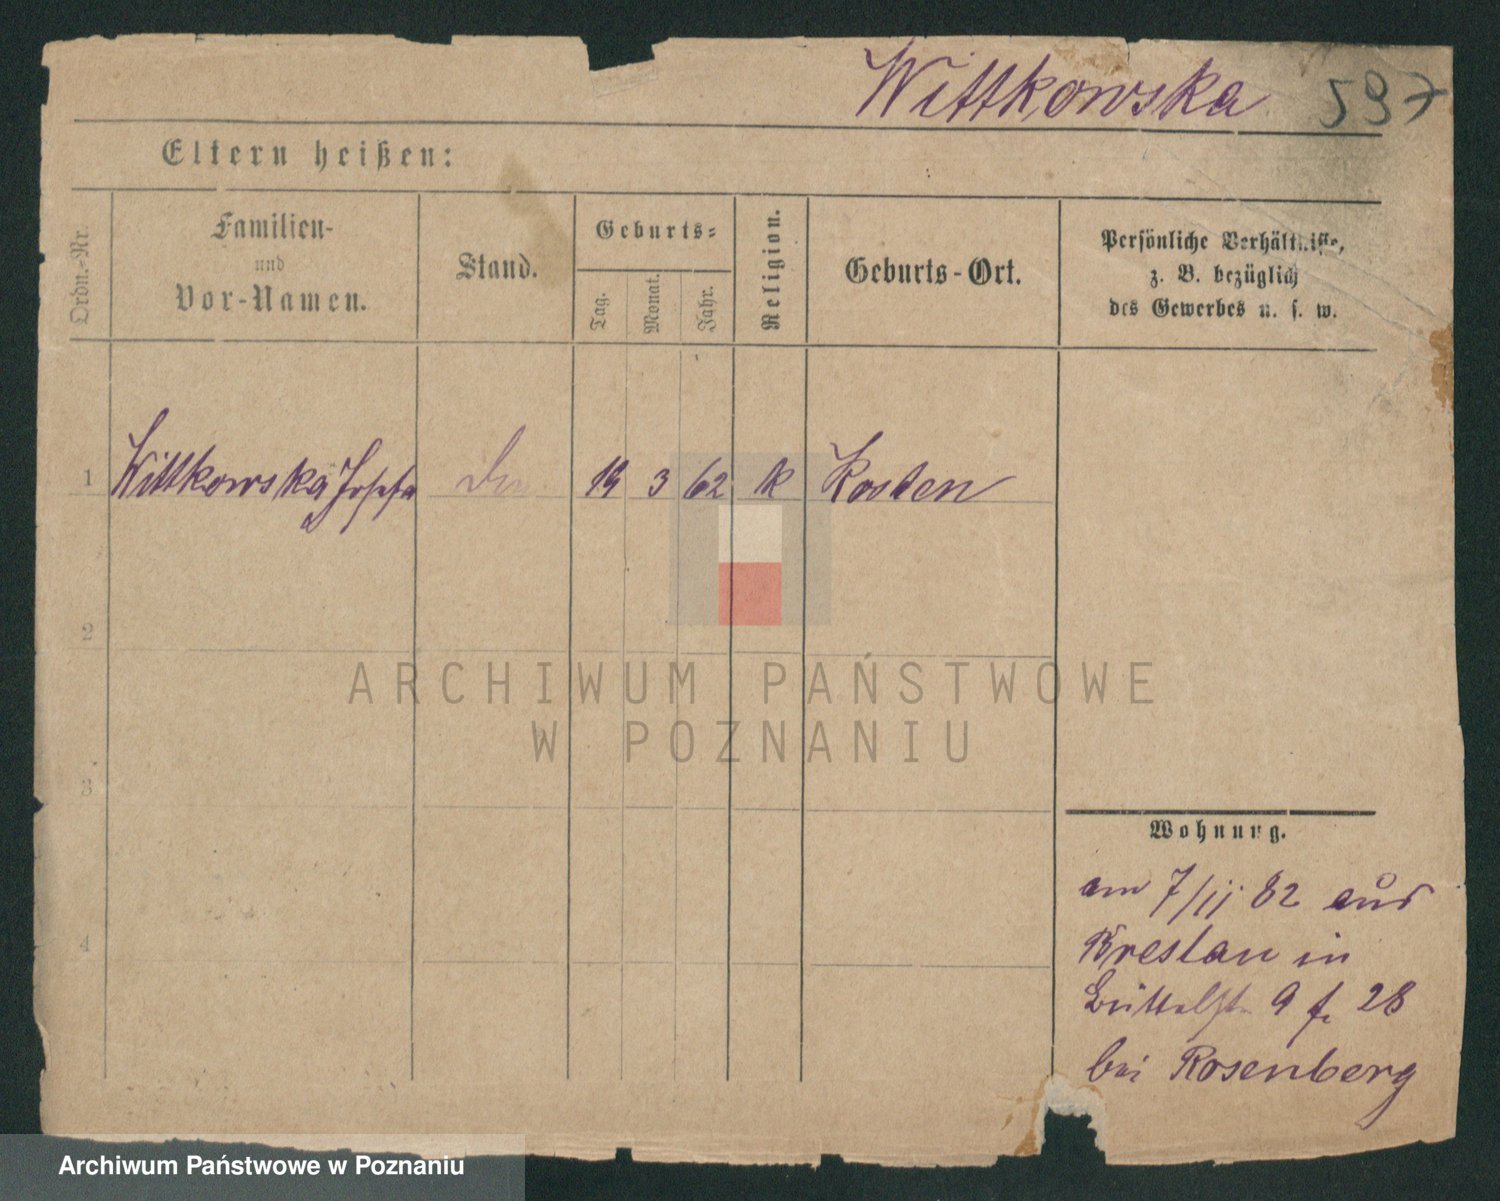 Wittkowska 597
Eltern heißen:
Ordn.-Nr.
Familien-
und
Vor-Namen.
Stand.
Geburts-
Tag.
Monat.
Jahr.
Religion.
Geburts-Ort.
Persönliche Verhältnisse,
z. B. bezüglich
des Gewerbes u. s. w.
1 Wittkowska Josefa 19 3 62 k Kosten
2
3
4
Wohnung.
am 7/11 82 aus
Breslau in
9 f. 28
bei Rosenberg
ARCHIWUM PAŃSTWOWE
W POZNANIU
Archiwum Państwowe w Poznaniu